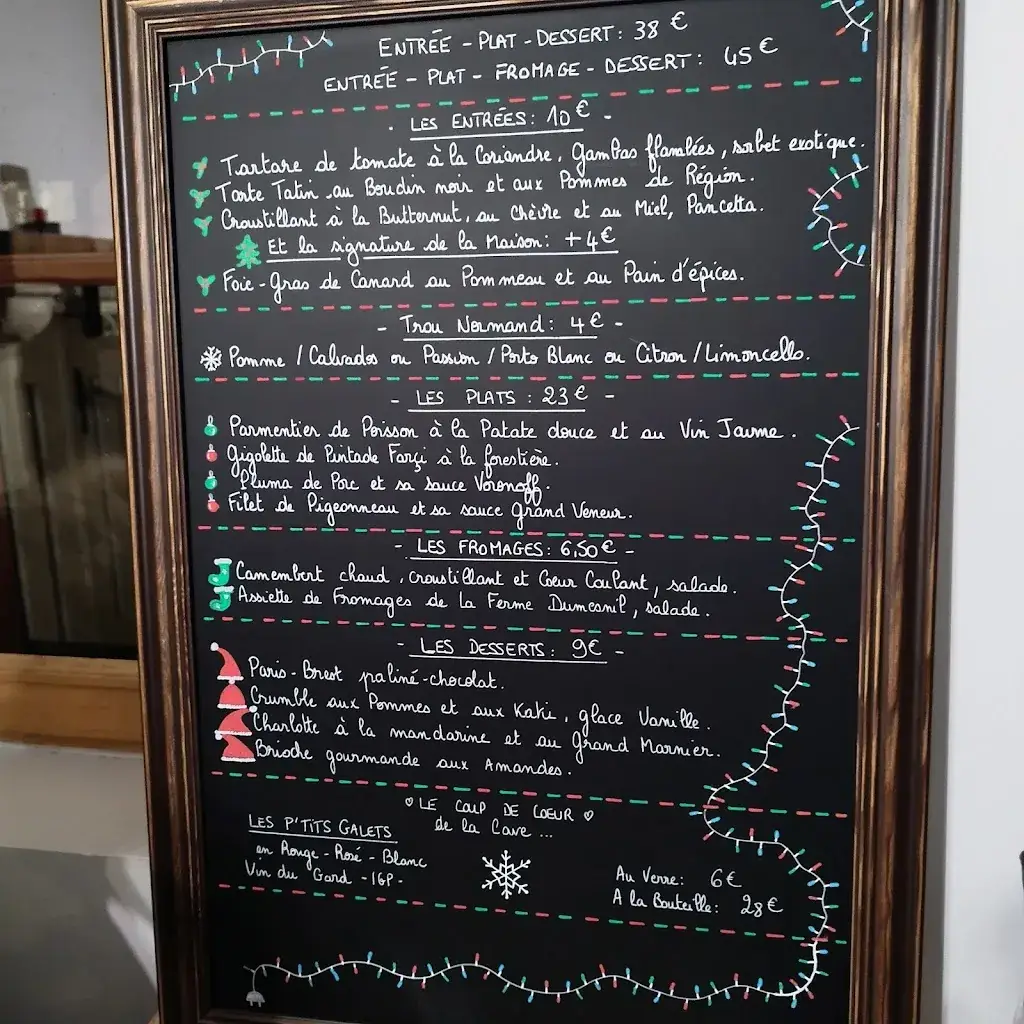 ENTRÉE - PLAT - DESSERT : 38 €
ENTRÉE - PLAT - FROMAGE - DESSERT : 45 €
- LES ENTRÉES : 10 € -
Tartare de tomate à la Coriandre, Gambas flambées, sorbet exotique.
Tarte Tatin au Boudin noir et aux Pommes de Région.
Croustillant à la Butternut, au Chèvre et au Miel, Pancetta.
Et la signature de la Maison : +4€
Foie-Gras de Canard au Pommeau et au Pain d'épices.
- Trou Normand : 4€ -
Pomme / Calvados ou Passion / Porto Blanc ou Citron / Limoncello.
- LES PLATS : 23 € -
Parmentier de Poisson à la Patate douce et au Vin Jaune.
Gigolette de Pintade Farçi à la forestière.
Pluma de Porc et sa sauce Voronoff.
Filet de Pigeonneau et sa sauce Grand Veneur.
- LES FROMAGES : 6,50 € -
Camembert chaud, croustillant et Coeur Coulant, salade.
Assiette de Fromages de La Ferme Dumesnil, salade.
- LES DESSERTS : 9€ -
Paris-Brest paliné-chocolat.
Crumble aux Pommes et aux Kaki, glace Vanille.
Charlotte à la mandarine et au Grand Marnier.
Brioche gourmande aux Amandes.
♡ LE COUP DE COEUR ♡
de la Cave ...
LES P'TITS GALETS
en Rouge - Rosé - Blanc
Vin du Gard - IGP -
Au Verre : 6€
A la Bouteille : 28€